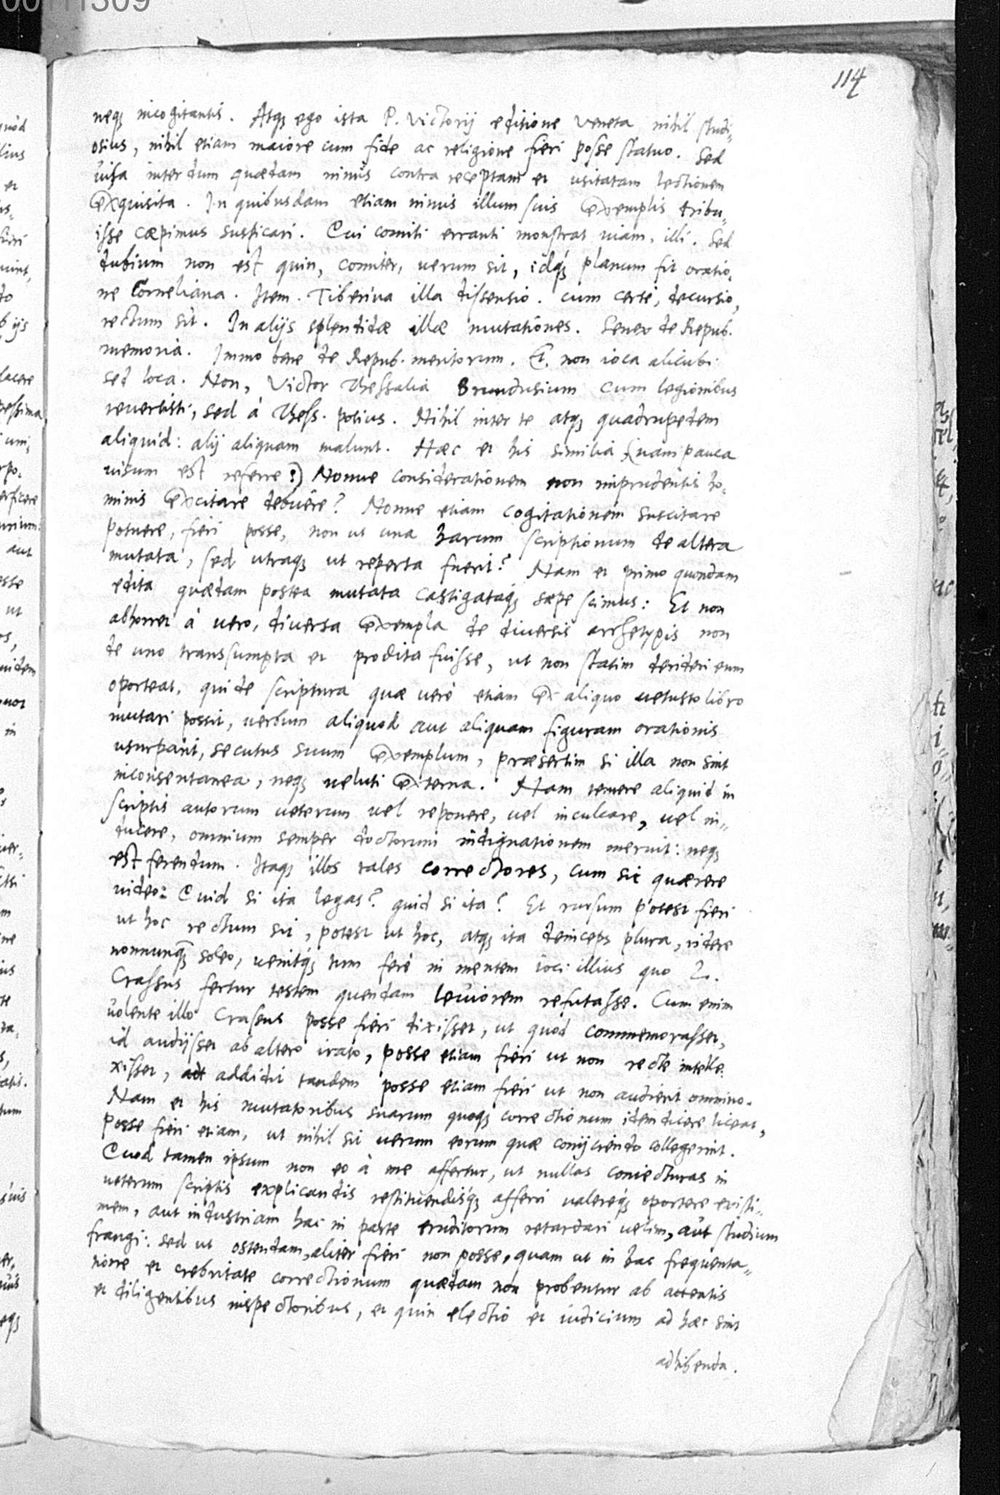 00111309
114
neq; incogitantis. Atq; ego ista P. Victorij editione Veneta nihil studi-
osius, nihil etiam maiore cum fide ac religione fieri posse statuo. Sed
visa interdum quædam nimis contra receptam et usitatam lectionem
exquisita. In quibusdam etiam nimis illum suis exemplis tribu-
isse cæpimus suspicari. Cui comiti erranti monstras uiam, illi. Sed
dubium non est quin, comiter, uerum sit, idq; planum fit oratio-
ne Corneliana. Item. Tiberina illa dissensio. cum certe, decursio,
rectum sit. In alijs splendidæ illæ mutationes. Senex de Repub.
memoria. Immo bene de Repub. meritorum. Et non ioca alicubi
sed loca. Non, Victor Thessalia Brundusium cum legionibus
reuertisti, sed à Thess. potius. Nihil inter te atq; quadrupedem
aliquid: alij aliquam malunt. Hæc et his similia (nam pauca
uisum est referre) Nonne considerationem non imprudentis ho-
minis excitare debuêre? Nonne etiam cogitationem suscitare
potuere, fieri posse, non ut una harum scriptionum de altera
mutata, sed utraq; ut reperta fuerit? Nam et primo quondam
edita quædam postea mutata castigataq; sæpe scimus: Et non
abhorret à uero, diuersa exempla de diuersis archetypis non
de uno transsumpta et prodita fuisse, ut non statim derideri eum
oporteat, qui de scriptura quæ uerè etiam ex aliquo uetusto libro
mutari possit, uerbum aliquod aut aliquam figuram orationis
usurparit, secutus suum exemplum, præsertim si illa non sint
inconsentanea, neq; ueluti externa. Nam temere aliquid in
scriptis autorum ueterum uel reponere, uel inculcare, uel in-
ducere, omnium semper doctorum indignationem meruit: neq;
est ferendum. Itaq; illos tales correctores, cum sic quærere
uideo: Quid si ita legas? quid si ita? Et rursum potest fieri
ut hoc rectum sit, potest ut hoc, atq; ita deinceps plura, ridere
nonnunq; soleo, uenitq; tum ferè in mentem ioci illius quo L.
Crassus fertur testem quendam leuiorem refutasse. Cum enim
uolente illo Crassus posse fieri dixisset, ut quod commemorasset,
id audijsset ab altero irato, posse etiam fieri ut non recte intelle-
xisset, addidit tandem posse etiam fieri ut non audierit omnino.
Nam et his mutatoribus suarum quoq; correctionum idem dicere liceat,
Posse fieri etiam, ut nihil sit uerum eorum quæ conijciendo collegerint.
Quod tamen ipsum non eo à me affertur, ut nullas coniecturas in
ueterum scriptis explicandis restituendisq; afferri ualereq; oportere existi-
mem, aut industriam hac in parte eruditorum retardari uelim, aut studium
frangi: sed ut ostendam, aliter fieri non posse, quam ut in hac frequenta-
tione et crebritate correctionum quædam non probentur ab attentis
et diligentibus inspectoribus, et quin electio et iudicium ad hæc sint
adhibenda.